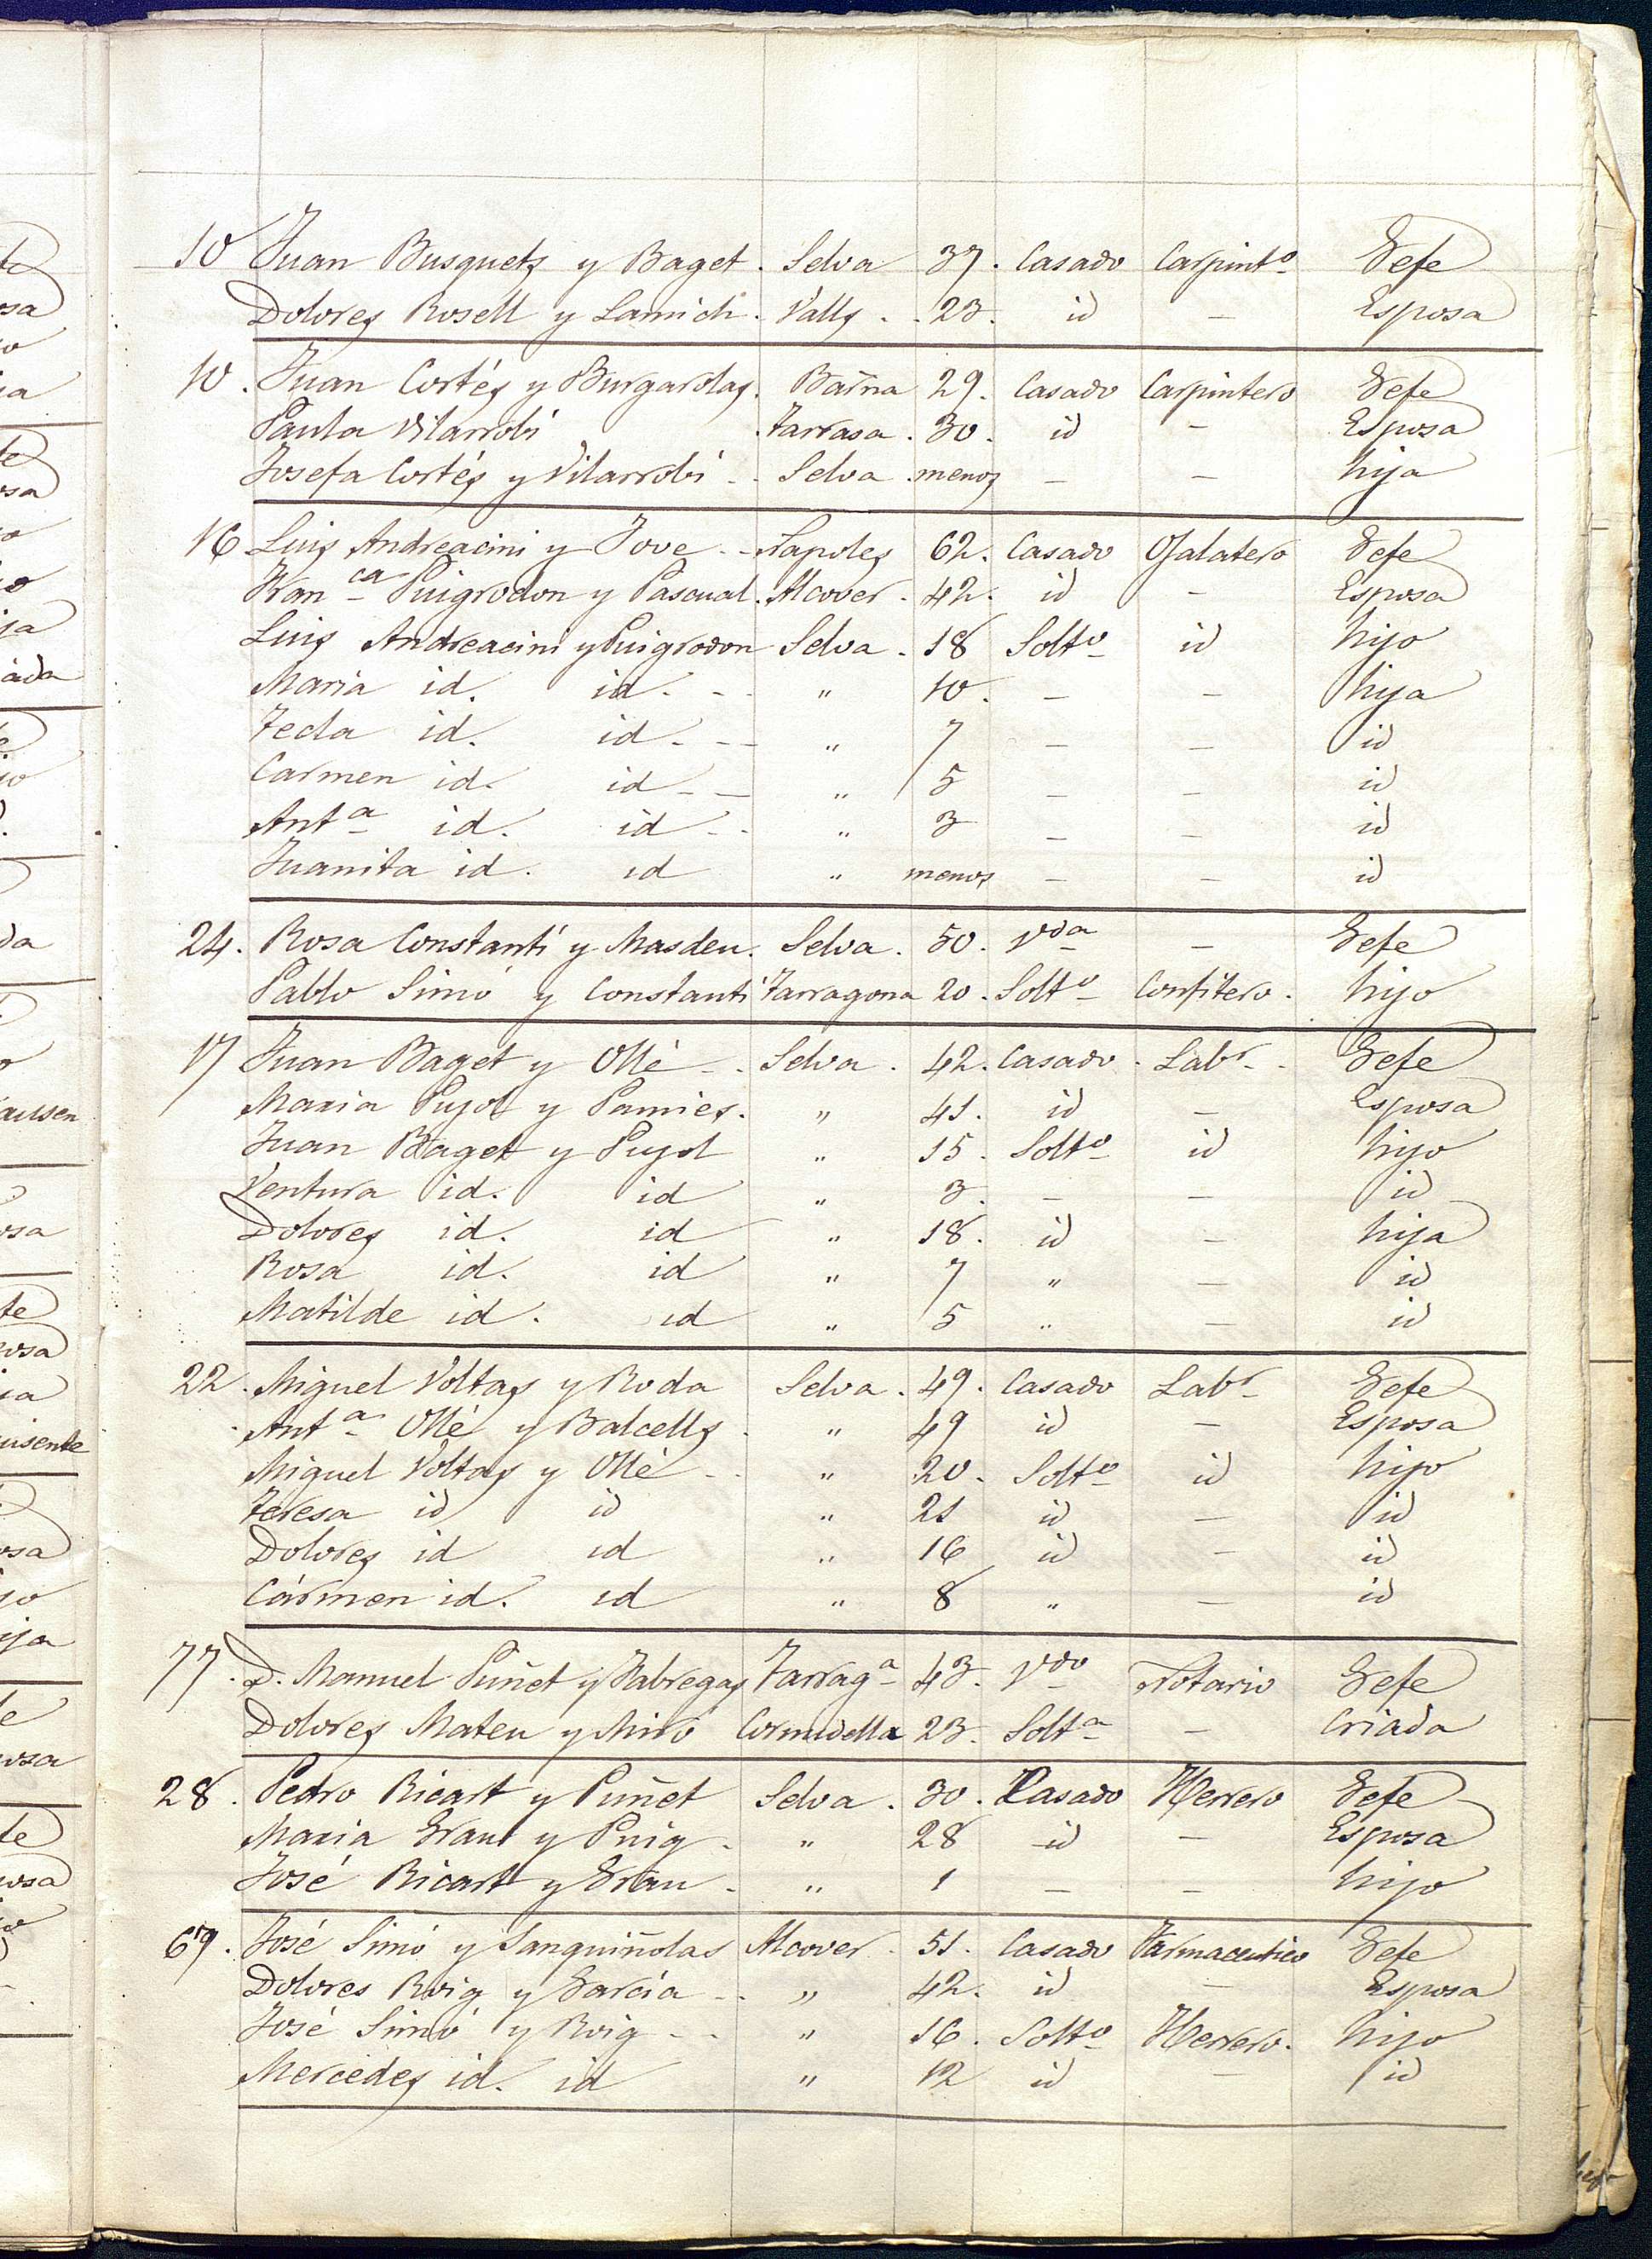 10 Juan Busquets y Baget. Selva 37. Casado Carpint.o Gefe
Dolores Rosell y Lamich. Valls. 23. id — Esposa
10. Juan Cortés y Burgarolas. Barna 29. Casado Carpintero Gefe
Paula Vilarrobí Tarrasa. 30. id — Esposa
Josefa Cortés y Vilarrobí Selva. menos — — hija
16 Luis Andreacini y Jove Napoles 62. Casado Ojalatero Gefe
Fran.ca Puigrodon y Pascual. Alcover. 42. id — Esposa
Luis Andreacini y Puigrodon Selva. 18 Solt.o id hijo
Maria id. id. " 10. — — hija
Tecla id. id. " 7 — — id
Carmen id. id " 5 — — id
Ant.a id. id " 3 — — id
Juanita id. id " menos — — id
24. Rosa Constantí y Masdeu. Selva. 50. V.da — Gefe
Pablo Simó y Constantí Tarragona 20. Solt.o Confitero. hijo
17 Juan Baget y Ollé Selva. 42. Casado Lab.r Gefe
Maria Pujol y Pamies. " 41. id — Esposa
Juan Baget y Pujol " 15. Solt.o id hijo
Ventura id. id " 3. — — id
Dolores id. id " 18. id — hija
Rosa id. id " 7 " — id
Matilde id. id " 5 " — id
22. Miguel Voltas y Roda Selva. 49. Casado Lab.r Gefe
Ant.a Ollé y Balcells " 49 id — Esposa
Miguel Voltas y Ollé " 20. Solt.o id hijo
Teresa id id " 21 id — id
Dolores id id " 16 id — id
Cármen id. id " 8 " — id
77. D. Manuel Puñet y Fabregas Tarrag.a 43. V.do Notario Gefe
Dolores Mateu y Miró Cornudella 23. Solt.a — Criada
28. Pedro Ricart y Puñet Selva. 30. Casado Herrero Gefe
Maria Grau y Puig. " 28 id — Esposa
José Ricart y Grau " 1 — — hijo
69. José Simó y Sanguiñolas Alcover. 51. Casado Farmaceutico Gefe
Dolores Roig y García " 42. id — Esposa
José Simó y Roig " 16. Solt.o Herrero. hijo
Mercedes id. id " 12 id — id